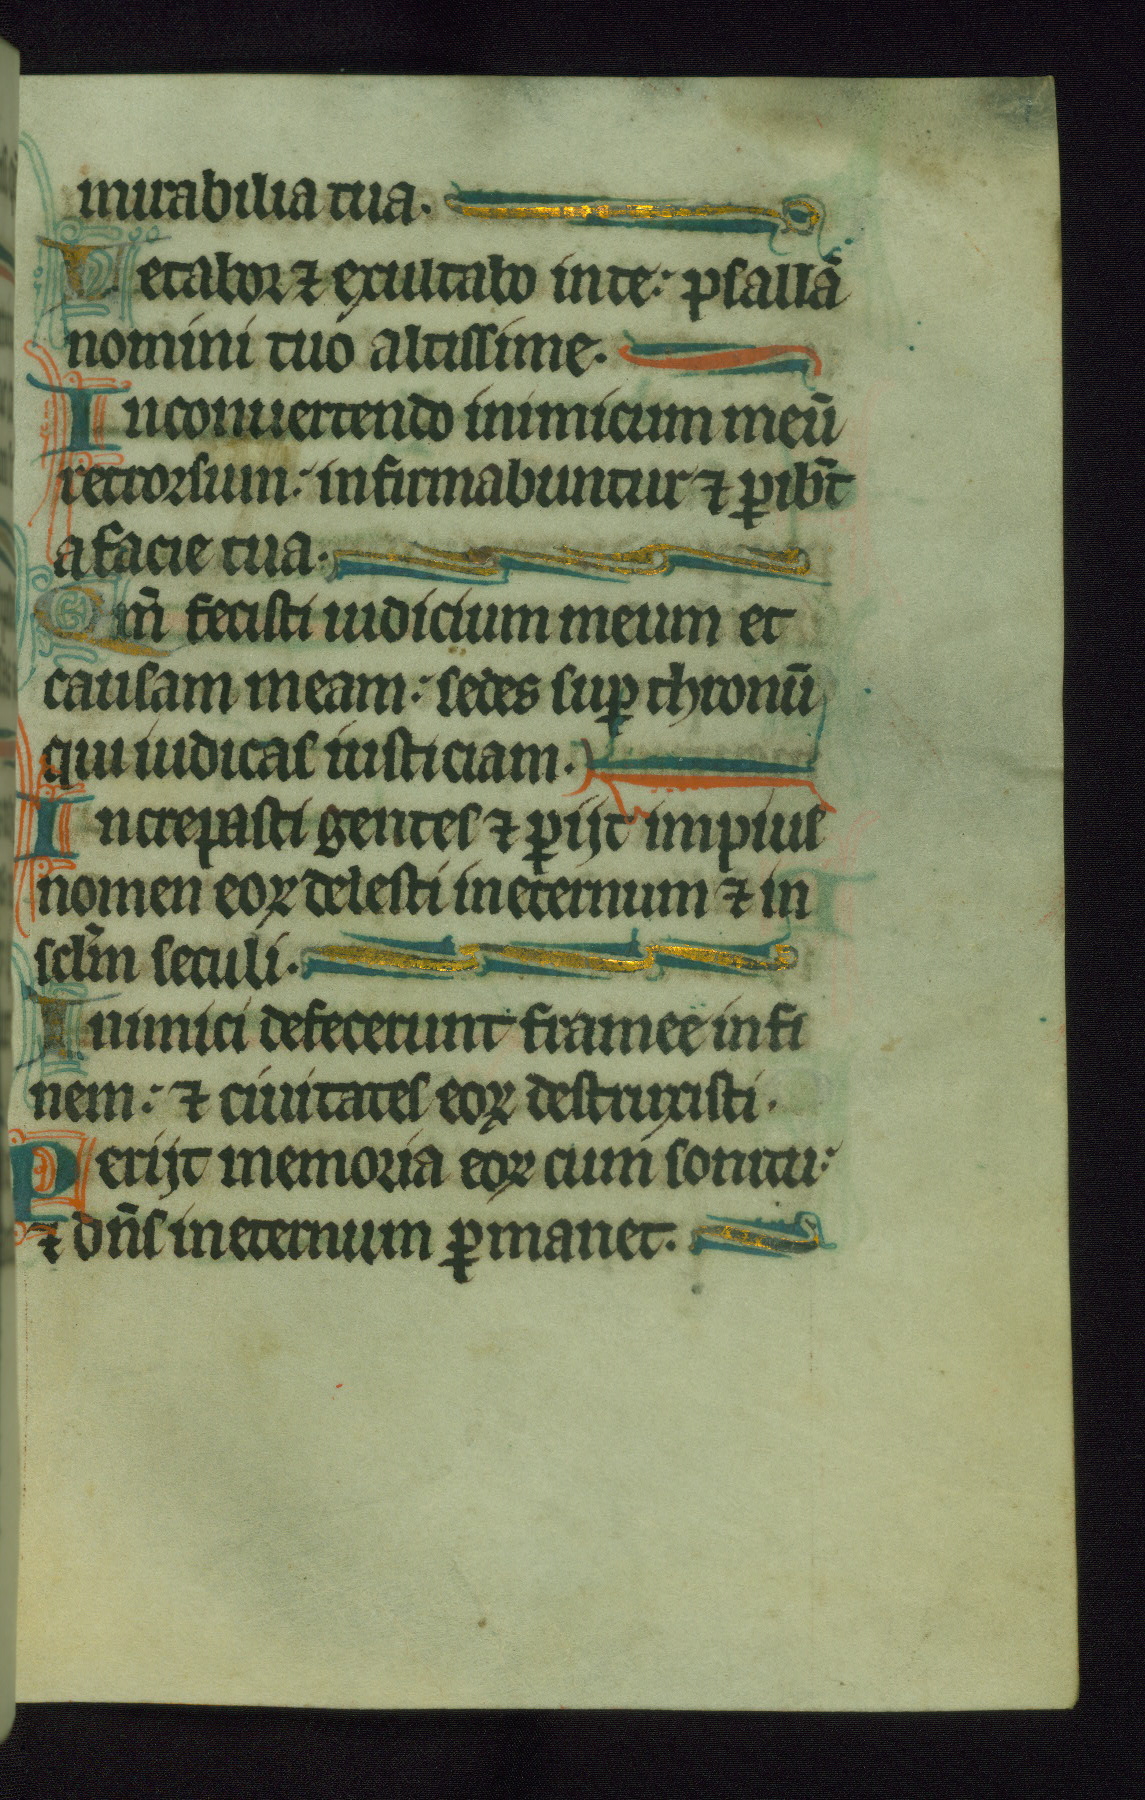 mirabilia tua.
Letabor ⁊ exultabo in te: psallā
nomini tuo altissime.
In conuertendo inimicum meū
retrorsum: infirmabuntur ⁊ ꝑibūt
a facie tua.
Qm̄ fecisti iudicium meum et
causam meam: sedes suꝑ thronū
qui iudicas iusticiam.
Increpasti gentes ⁊ ꝑijt impius
nomen eoꝝ delesti in eternum ⁊ in
sclm̄ seculi.
Inimici defecerunt framee in fi
nem: ⁊ ciuitates eoꝝ destruxisti.
Perijt memoria eoꝝ cum sonitu:
⁊ dn̄s in eternum ꝑmanet.